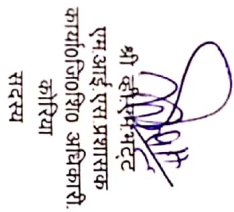 श्री व्ही.एस.भट्ट
एम.आई.एस.प्रशासक
कार्या०जि०शि० अधिकारी.
कोरिया
सदस्य